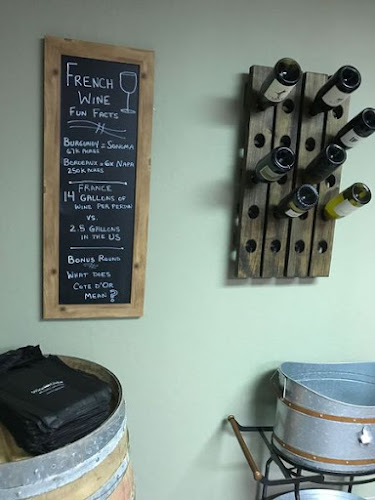 FRENCH
WINE
FUN FACTS
BURGUNDY = SONOMA
67K ACRES
BORDEAUX = 6X NAPA
250K ACRES
FRANCE
14 GALLONS OF
WINE PER PERSON
VS.
2.5 GALLONS
IN THE US
BONUS ROUND
WHAT DOES
COTE D'OR
MEAN?